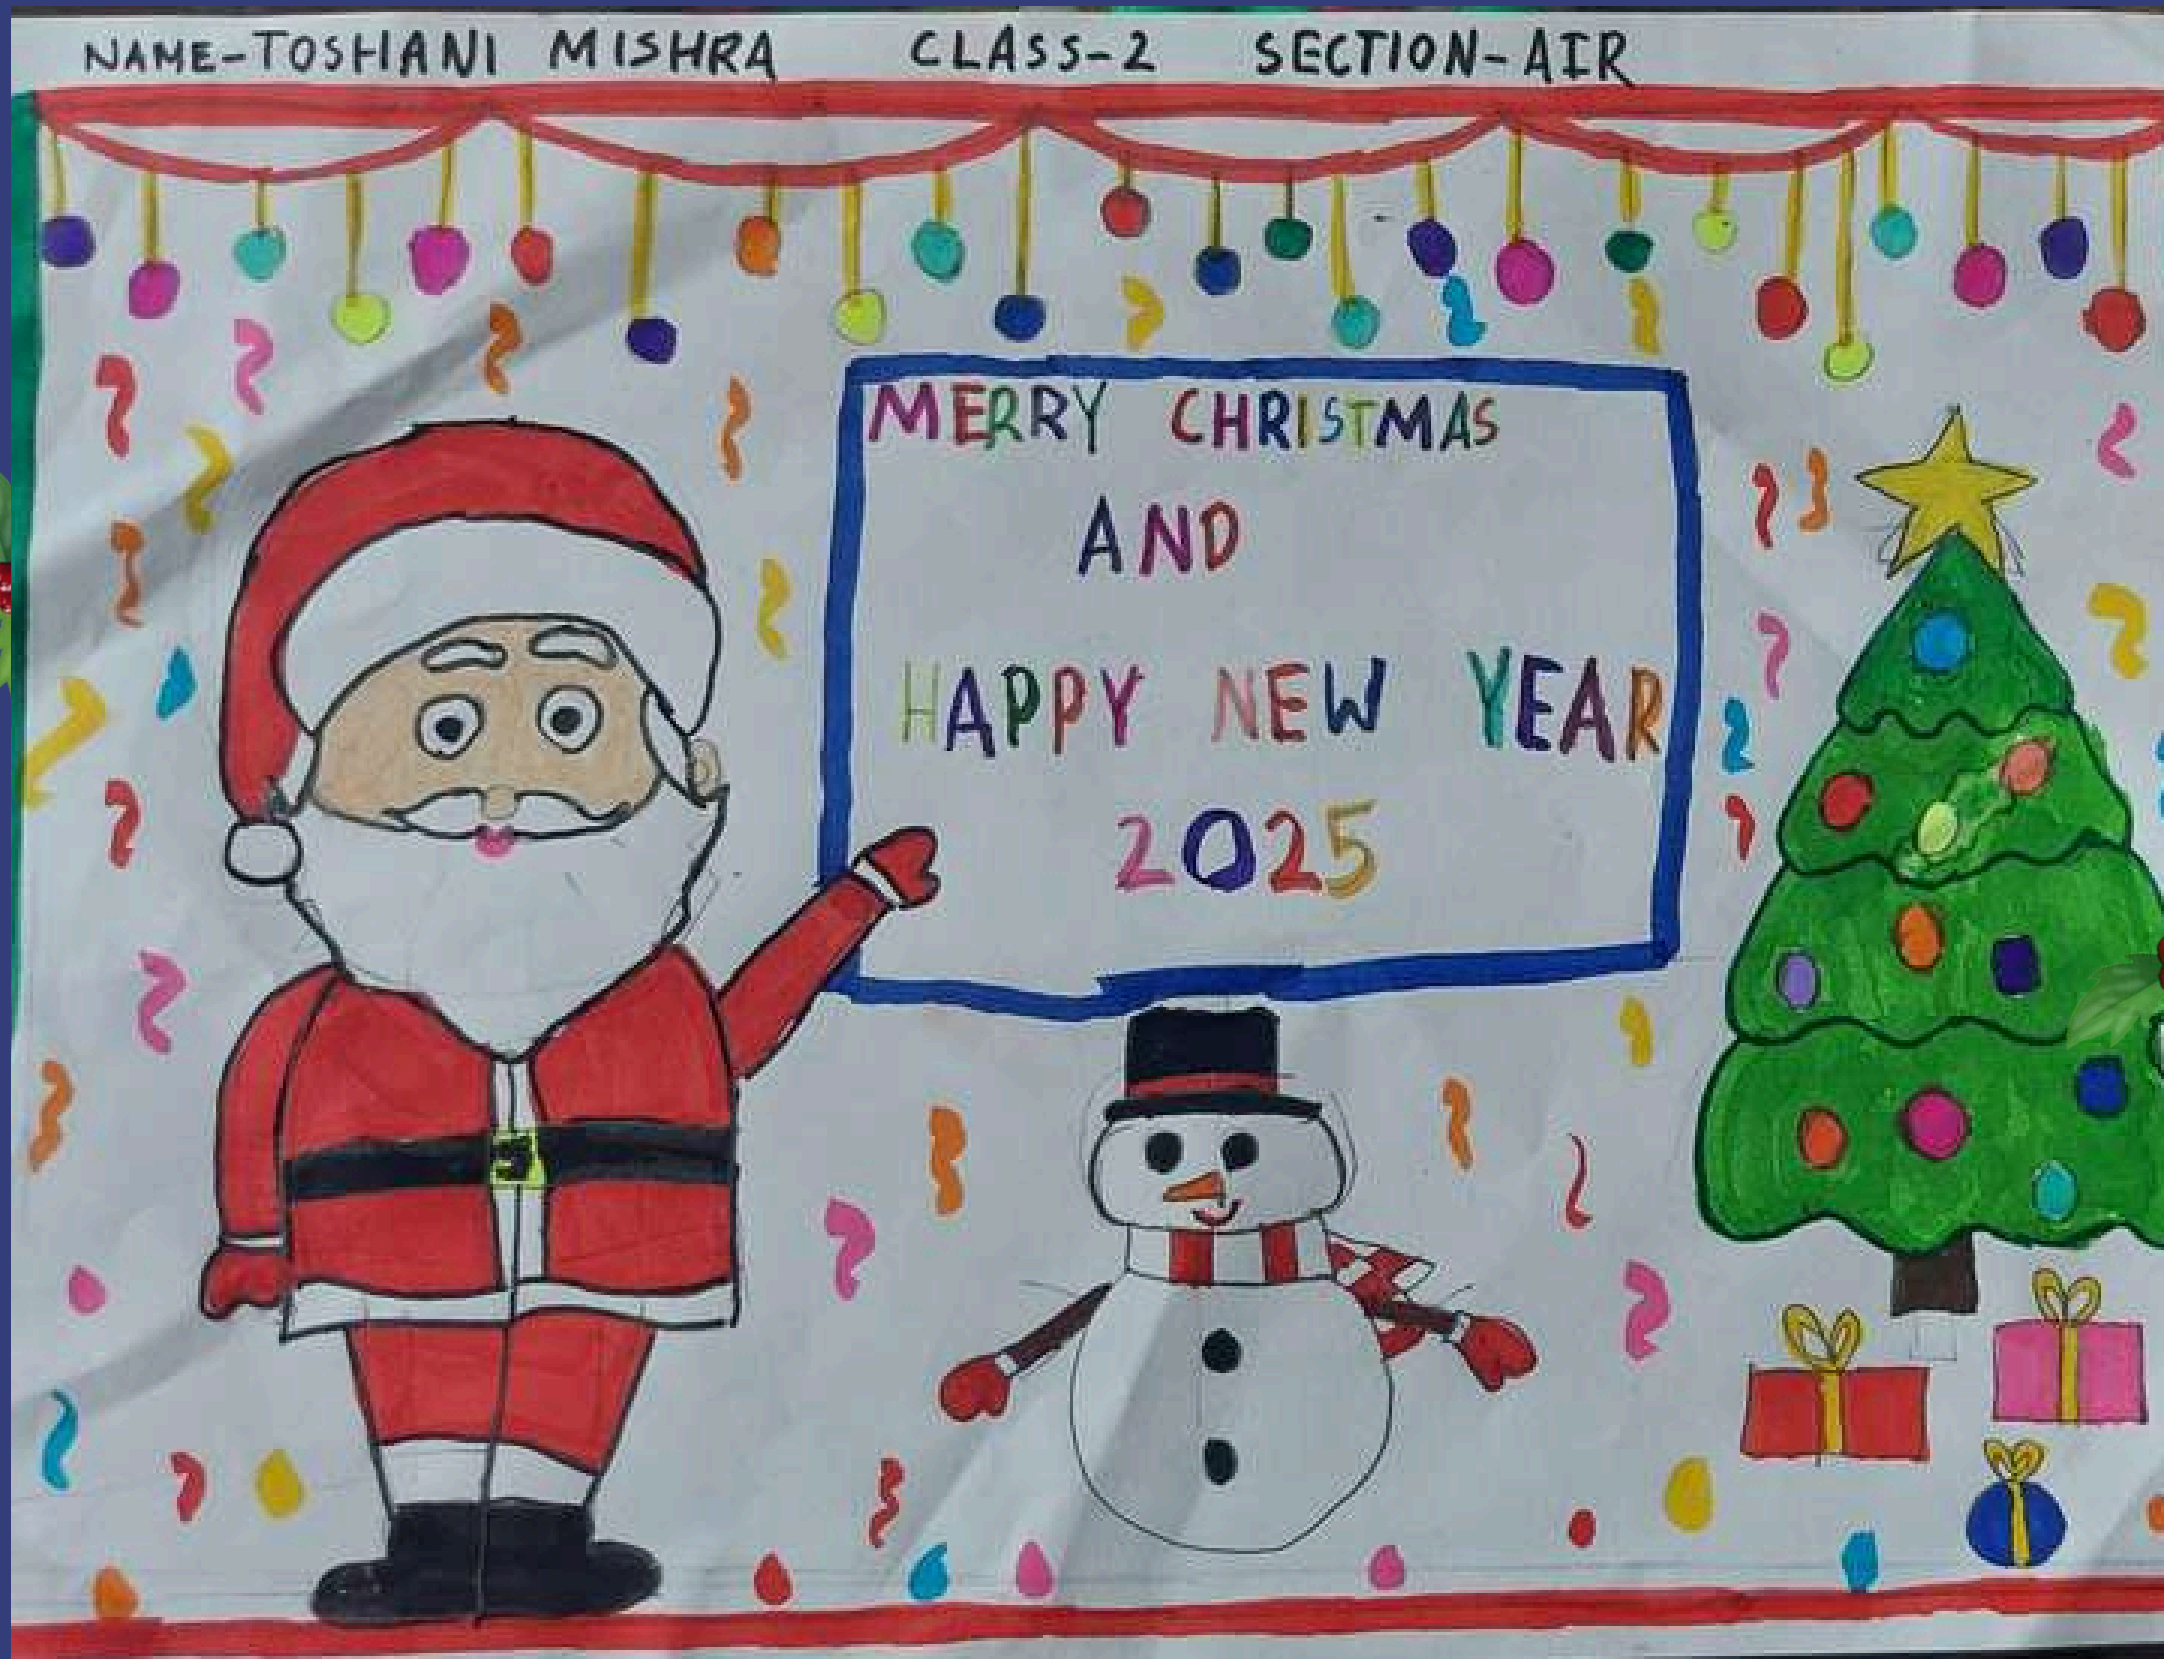 NAME-TOSHANI MISHRA CLASS-2 SECTION-AIR
MERRY CHRISTMAS
AND
HAPPY NEW YEAR
2025